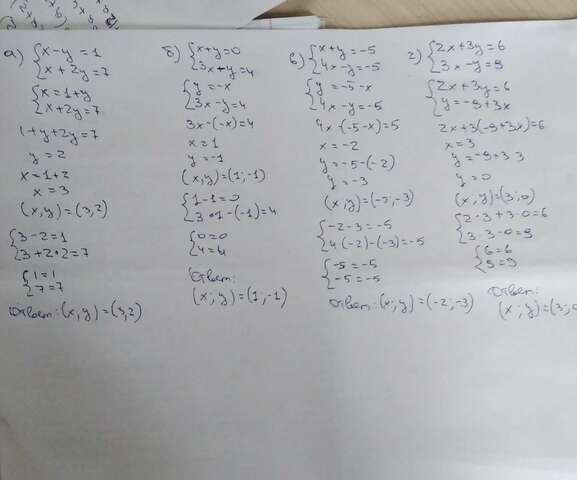 а) { x-y=1
x+2y=7
{ x=1+y
x+2y=7
1+y+2y=7
y=2
x=1+2
x=3
(x,y)=(3,2)
{ 3-2=1
3+2•2=7
{ 1=1
7=7
Ответ:(x,y)=(3,2)
б) { x+y=0
3x+y=4
{ y=-x
3x-y=4
3x-(-x)=4
x=1
y=-1
(x,y)=(1;-1)
{ 1-1=0
3•1-(-1)=4
{ 0=0
4=4
Ответ:
(x;y)=(1;-1)
в) { x+y=-5
4x-y=-5
{ y=-5-x
4x-y=-5
4x-(-5-x)=5
x=-2
y=-5-(-2)
y=-3
(x;y)=(-2;-3)
{ -2-3=-5
4(-2)-(-3)=-5
{ -5=-5
-5=-5
Ответ:(x;y)=(-2;-3)
г) { 2x+3y=6
3x-y=9
{ 2x+3y=6
y=-9+3x
2x+3(-9+3x)=6
x=3
y=-9+3·3
y=0
(x;y)=(3;0)
{ 2·3+3·0=6
3·3-0=9
{ 6=6
9=9
Ответ:
(x;y)=(3;